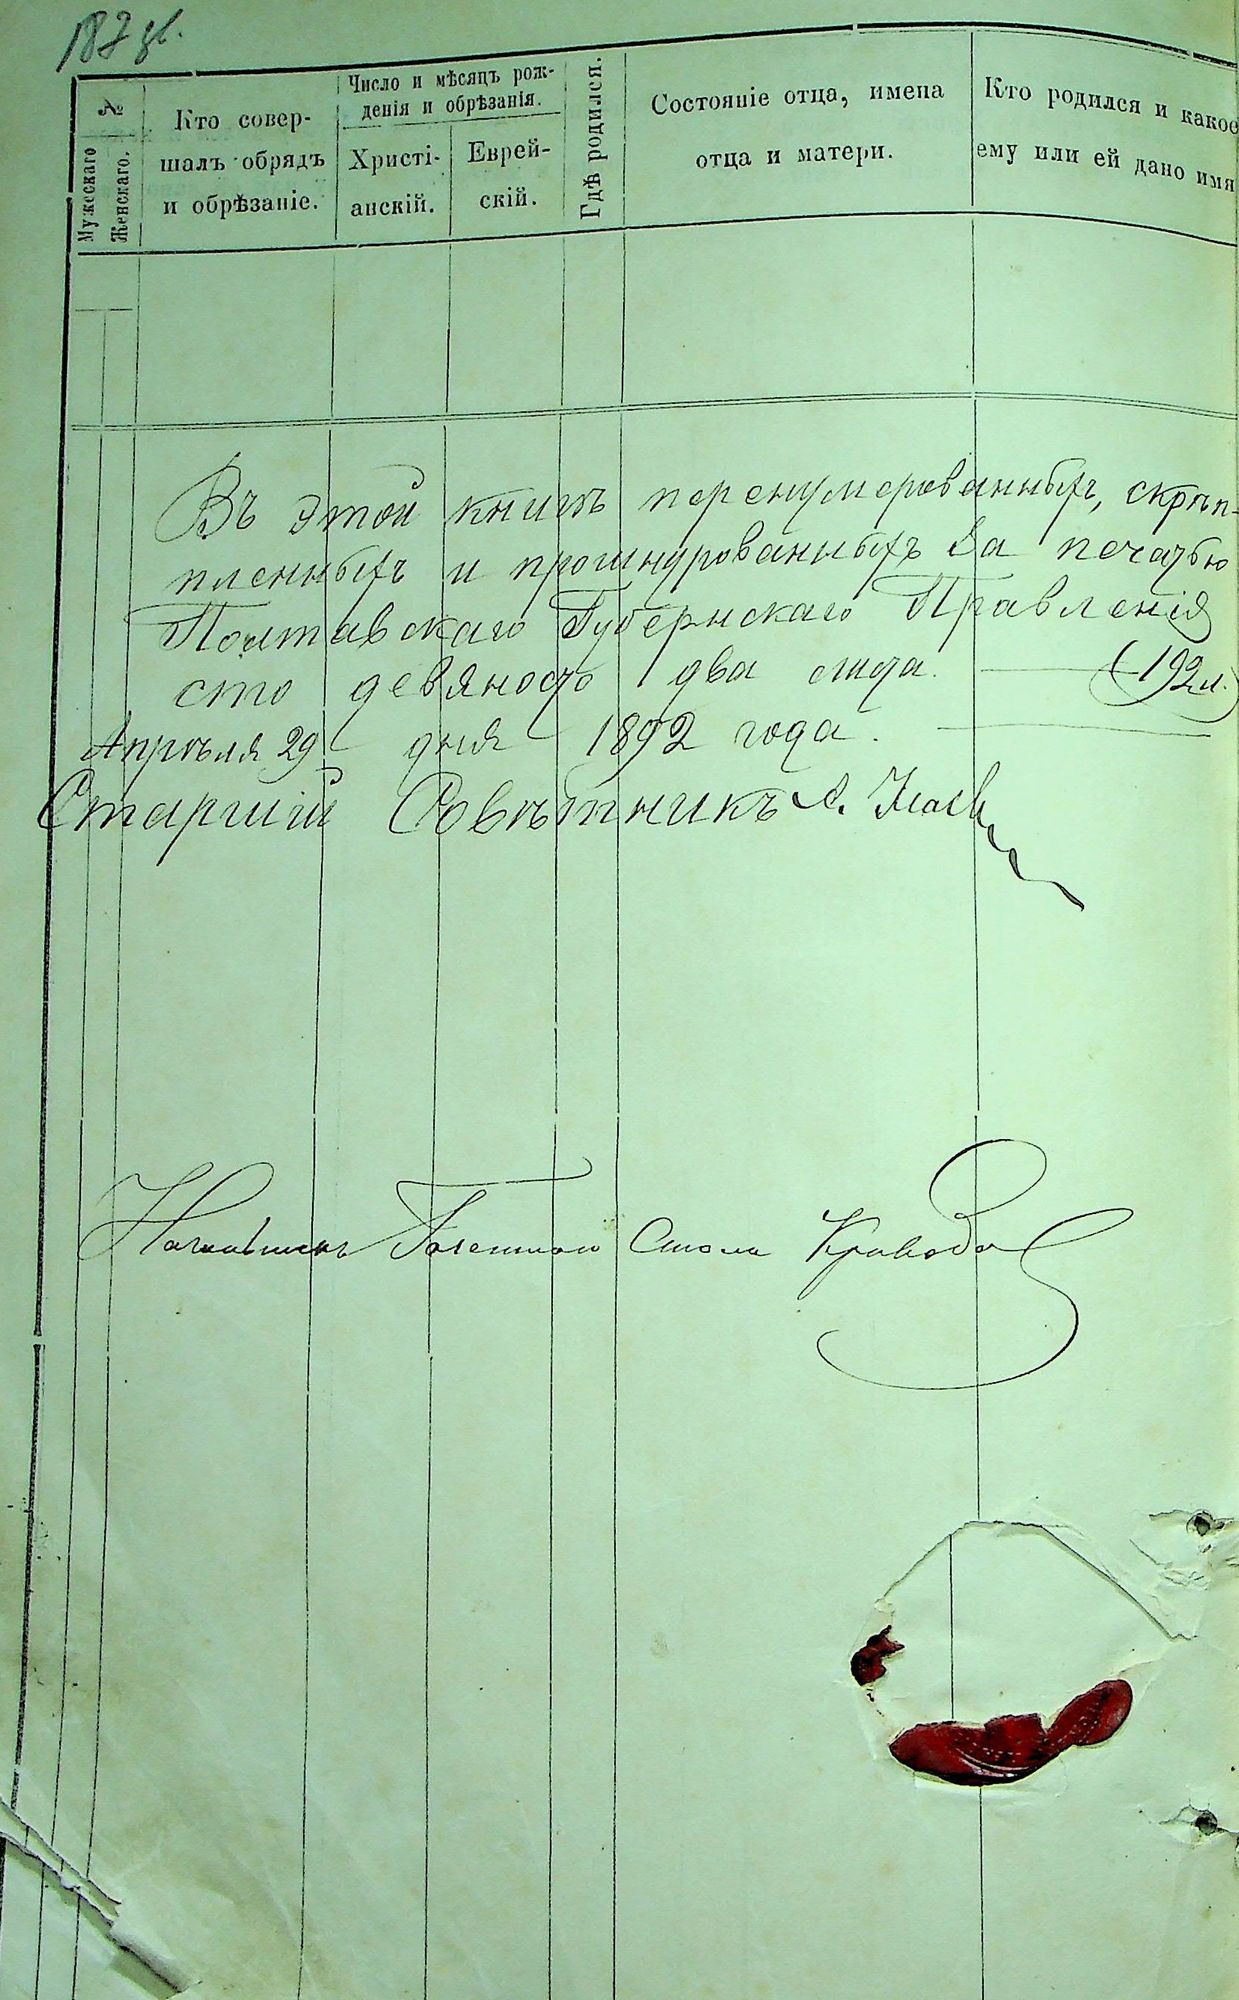 187 об.
№
Мужескаго
Женскаго.
Кто совер-
шалъ обрядъ
и обрѣзаніе.
Число и мѣсяцъ рож-
денія и обрѣзанія.
Христі-
анскій.
Еврей-
скій.
Гдѣ родился.
Состояніе отца, имена
отца и матери.
Кто родился и какое
ему или ей дано имя
Въ этой книгѣ перенумерованныхъ, скрѣп-
пленныхъ и прошнурованныхъ за печатью
Полтавскаго Губернскаго Правленія
сто девяносто два листа. (192 л.)
Апрѣля 29 дня 1892 года.
Старшій Совѣтникъ А.
Стола